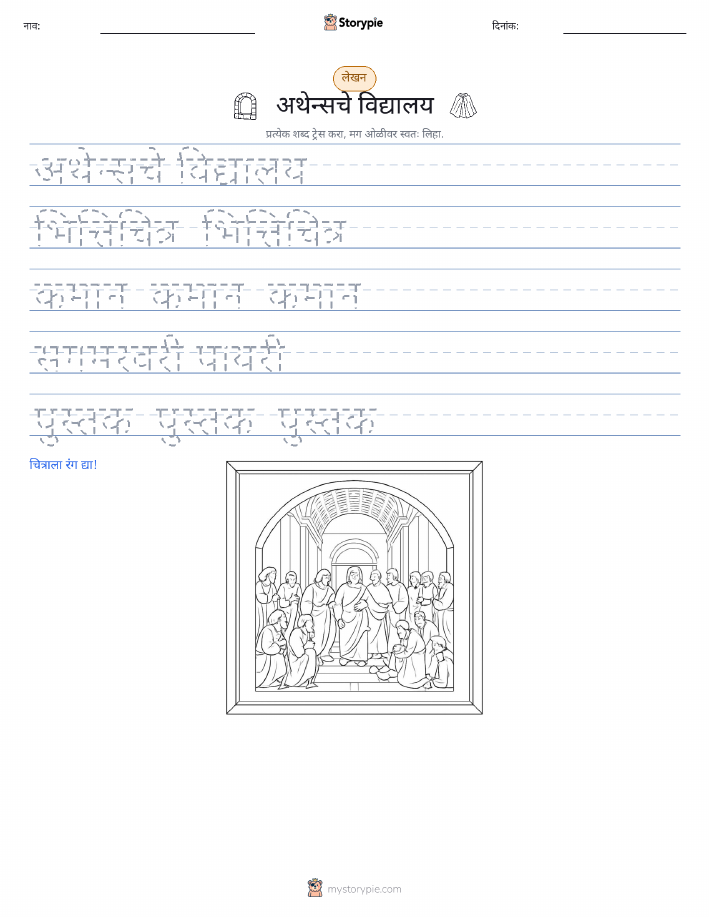 नाव:
Storypie
दिनांक:
लेखन
अथेन्सचे विद्यालय
प्रत्येक शब्द ट्रेस करा, मग ओळीवर स्वतः लिहा.
अथेन्सचे विद्यालय
भित्तिचित्र भित्तिचित्र
कमान कमान कमान
संगमरवरी पायरी
पुस्तक पुस्तक पुस्तक
चित्राला रंग द्या!
mystorypie.com